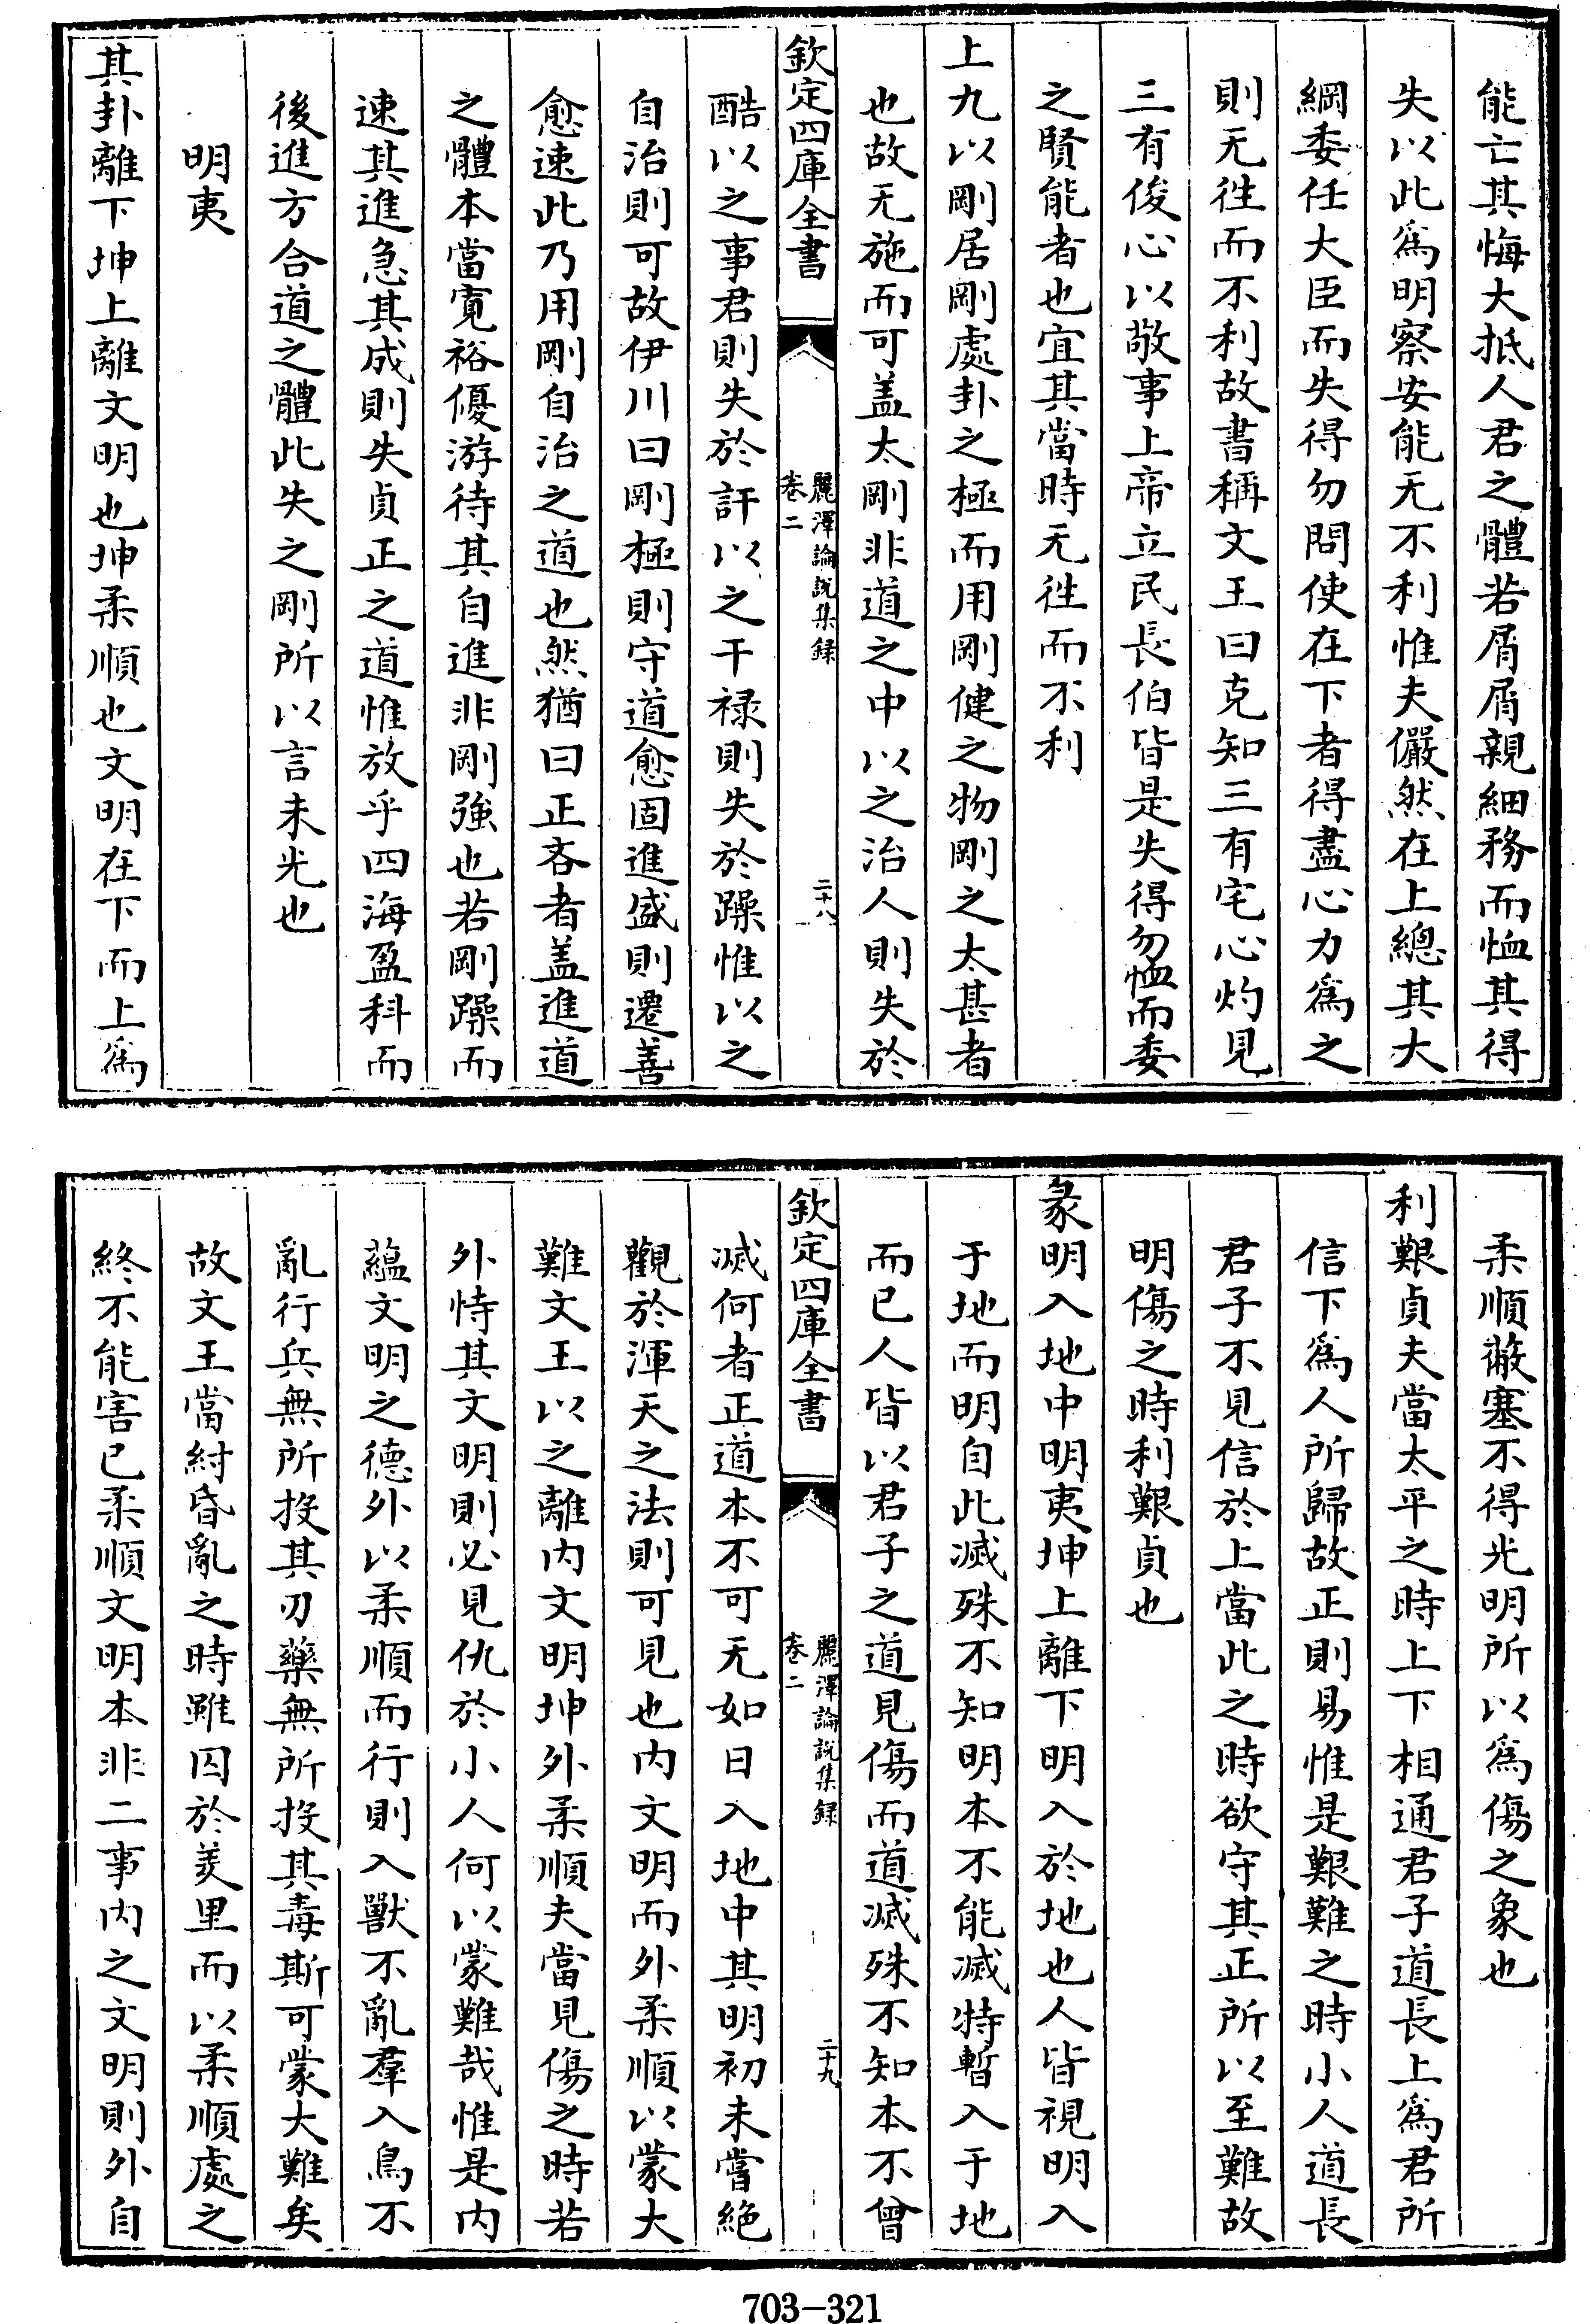 能亡其悔大抵人君之體若屑屑親細務而恤其得
失以此爲明察安能无不利惟夫儼然在上總其大
綱委任大臣而失得勿問使在下者得盡心力爲之
則无徃而不利故書稱文王曰克知三有宅心灼見
三有俊心以敬事上帝立民長伯皆是失得勿恤而委
之賢能者也宜其當時无徃而不利
上九以剛居剛處卦之極而用剛健之物剛之太甚者
也故无施而可盖太剛非道之中以之治人則失於
欽定四庫全書
麗澤論說集錄
卷二
二十八
酷以之事君則失於訐以之干禄則失於躁惟以之
自治則可故伊川曰剛極則守道愈固進盛則遷善
愈速此乃用剛自治之道也然猶曰正吝者盖進道
之體本當寛裕優游待其自進非剛強也若剛躁而
速其進急其成則失貞正之道惟放乎四海盈科而
後進方合道之體此失之剛所以言未光也
明夷
其卦離下坤上離文明也坤柔順也文明在下而上爲
柔順蔽塞不得光明所以爲傷之象也
利艱貞夫當太平之時上下相通君子道長上爲君所
信下爲人所歸故正則易惟是艱難之時小人道長
君子不見信於上當此之時欲守其正所以至難故
明傷之時利艱貞也
彖明入地中明夷坤上離下明入於地也人皆視明入
于地而明自此滅殊不知明本不能滅特暫入于地
而已人皆以君子之道見傷而道滅殊不知本不曾
欽定四庫全書
麗澤論說集錄
卷二
二十九
滅何者正道本不可无如日入地中其明初未嘗絶
觀於渾天之法則可見也内文明而外柔順以蒙大
難文王以之離内文明坤外柔順夫當見傷之時若
外恃其文明則必見仇於小人何以蒙難哉惟是内
藴文明之德外以柔順而行則入獸不亂羣入鳥不
亂行兵無所投其刃藥無所投其毒斯可蒙大難矣
故文王當紂昏亂之時雖囚於羑里而以柔順處之
終不能害已柔順文明本非二事内之文明則外自
703-321